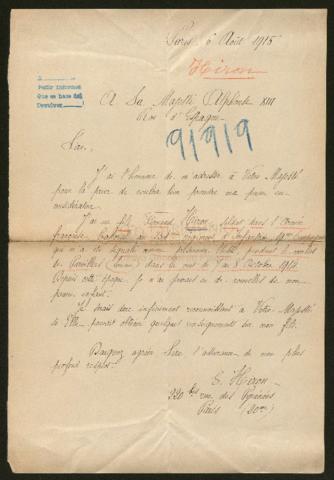 Paris 6 Août 1915
Hiron
Pedir informes
Que se hace del
A Sa Majesté Alphonse XIII
Roi d'Espagne
91919
Sire,
J'ai l'honneur de m'adresser à Votre Majesté
pour la prier de vouloir bien prendre ma prière en
considération.
J'ai un fils, Hiron, soldat dans l'Armée
française, régiment d'Infanterie, compagnie
qui m'a été signalé comme
(Somme) dans la nuit du 7 au 8 Octobre 1914.
Depuis cette époque, je n'ai jamais eu de nouvelles de mon
pauvre enfant.
Je serais donc infiniment reconnaissant à Votre Majesté
si Elle pouvait obtenir quelques renseignements sur mon fils.
Daignez agréer, Sire, l'assurance de mon plus
profond respect.
E. Hiron
220 bis rue des Pyrénées
Paris (20me)